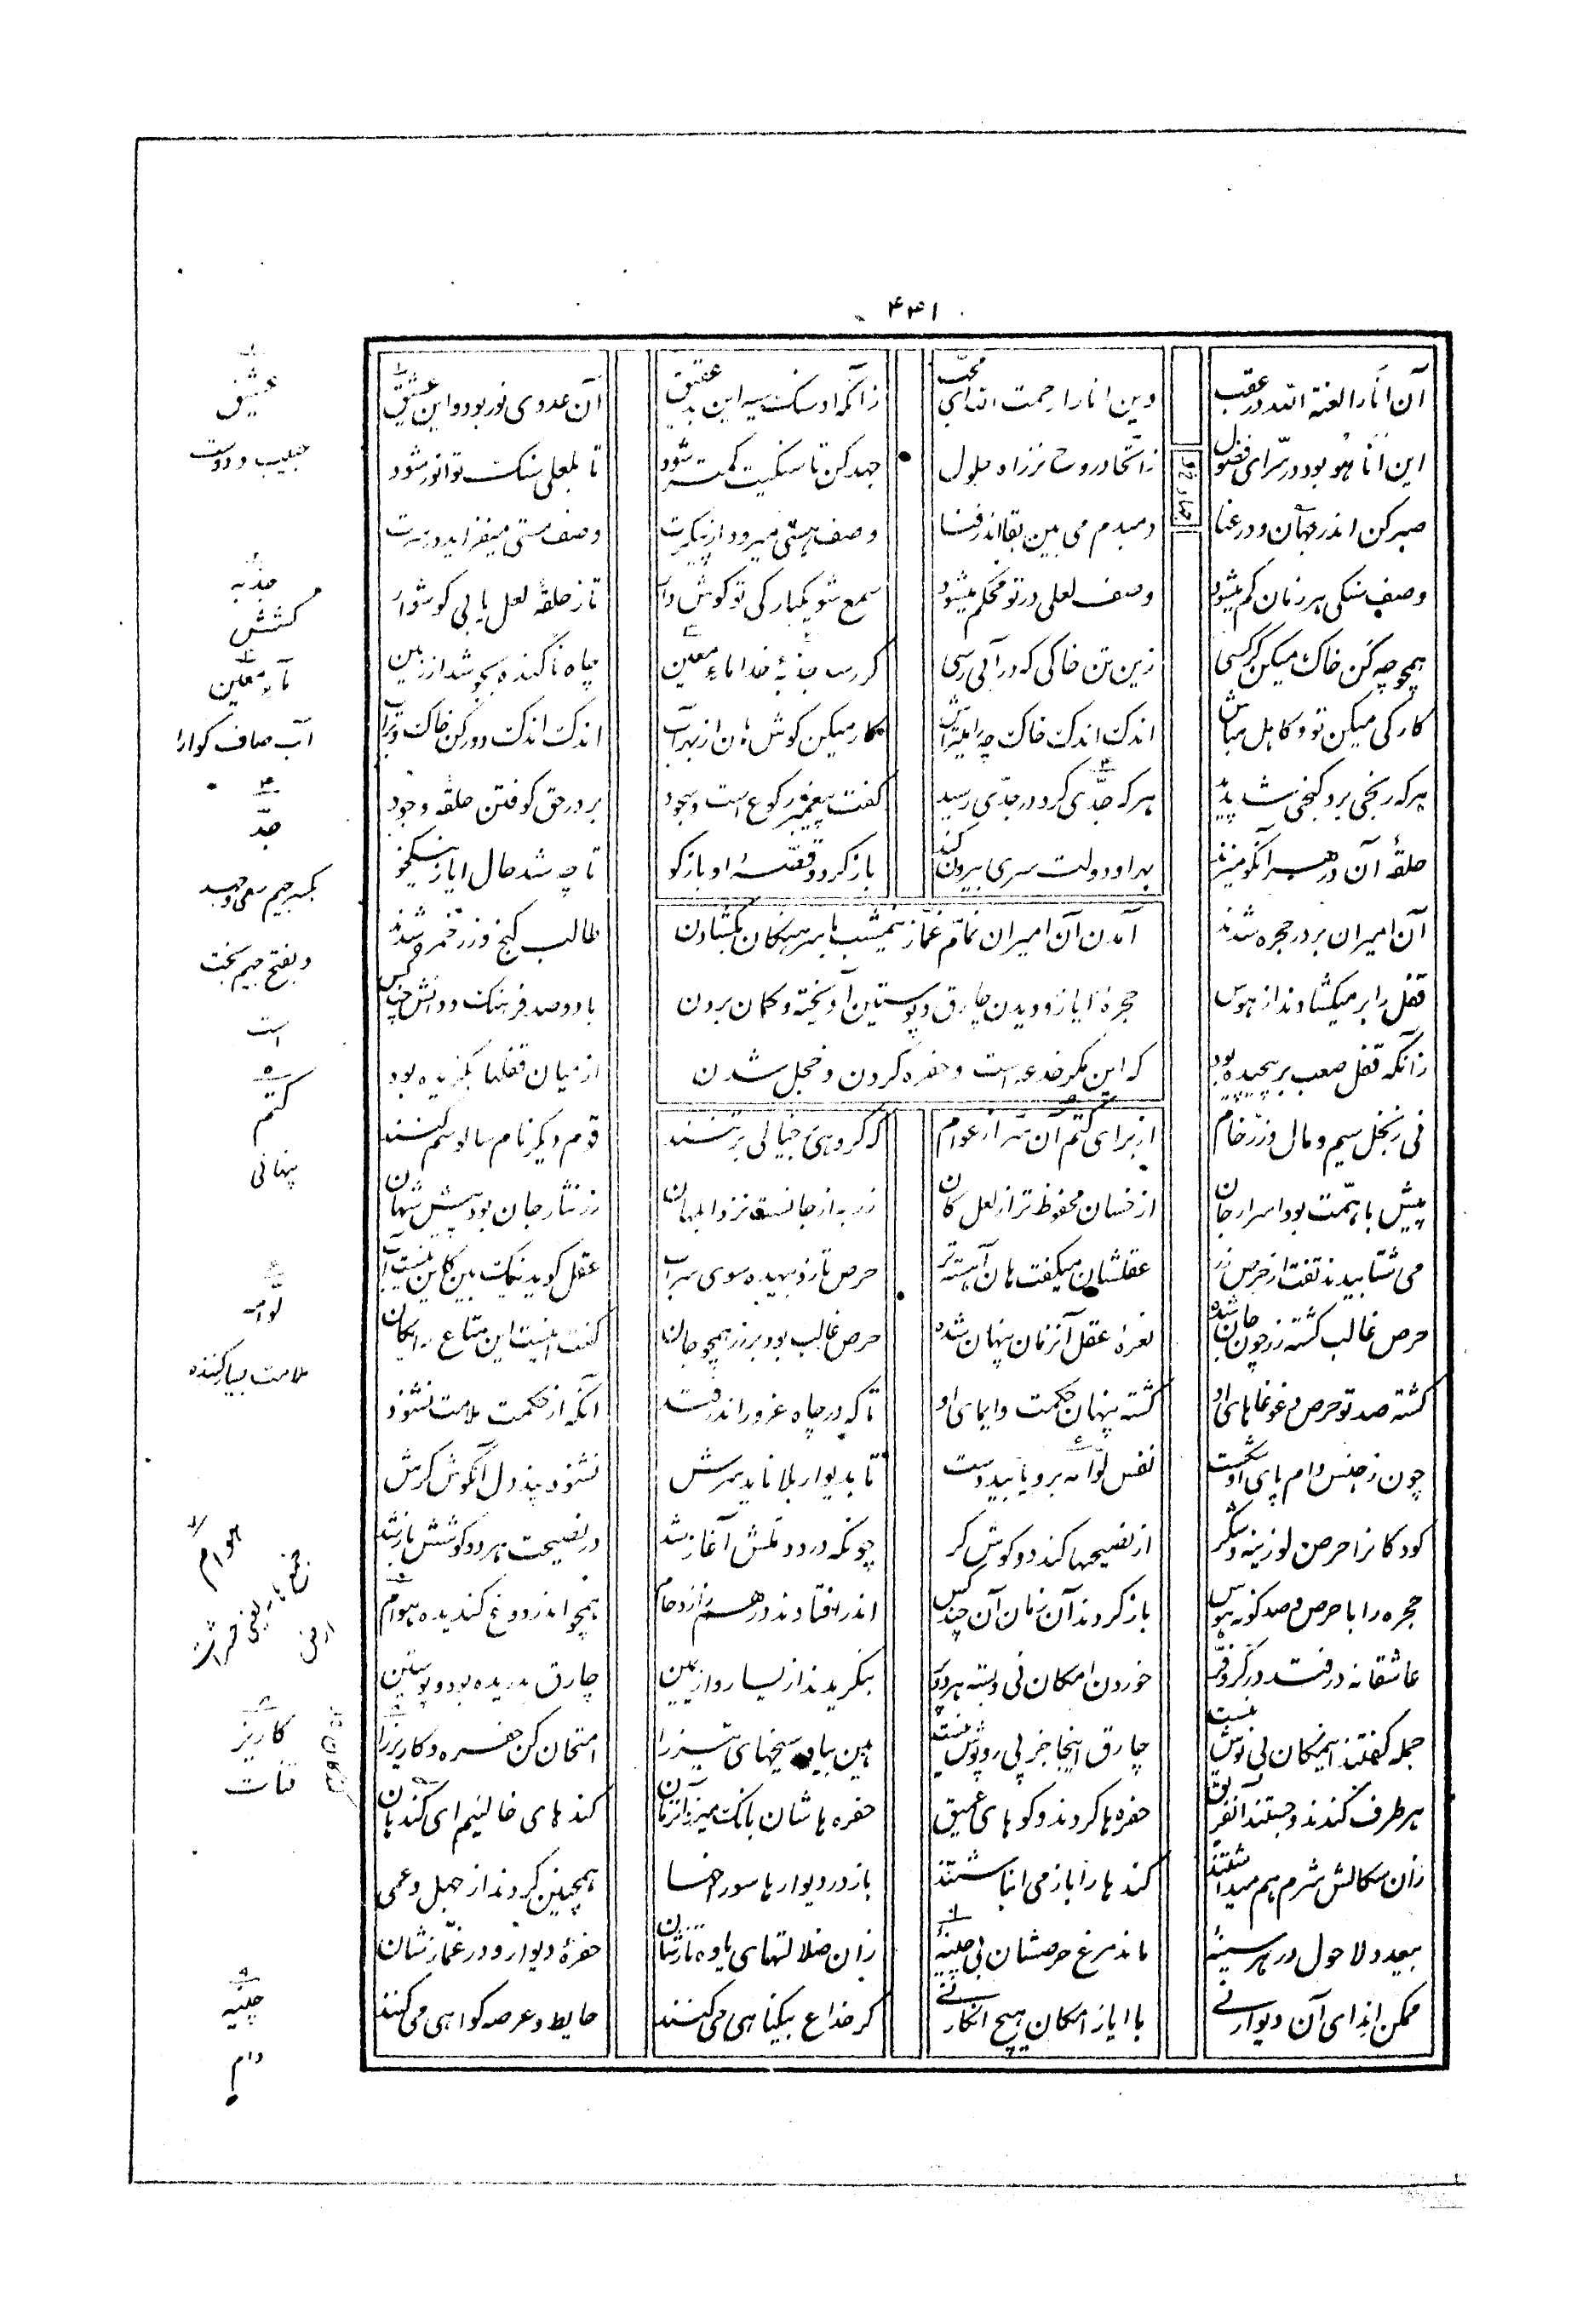 ۴۴۱
آن انا را لعنة الله در عقب	وین انا را رحمت الله ای محب	زآنکه او سنک سیه این بد عقیق	آن عدوی نور بود و این عشیق
این انا هو بود در سر ای فضول	ز اتحاد نور نز راه حلول	جهد کن تا سنکیت کمتر شود	تا بلعلی سنک تو انور شود
صبر کن اندر جهاد و در عنا	دمبدم می بین بقا اندر فنا	وصف هستی میرود از پیکرت	وصف مستی میفزاید در سرت
وصف سنکی هر زمان کم میشود	وصف لعلی در تو محکم میشود	سمع شو یکبارکی تو کوش وار	تا ز حلقه لعل یابی کوشوار
همچو چه کن خاک میکن کر کسی	زین تن خاکی که در آبی رسی	کر رسد جذبهٔ خدا ماء معین	چاه ناکنده بجوشد از زمین
کارکی میکن تو و کاهل مباش	اندک اندک خاک چه را میتراش	کار میکن کوش هان از بهر آب	اندک اندک دور کن خاک و تراب
هر که رنجی برد کنجی شد پدید	هر که جدی کرد در جدی رسید	کفت پیغمبر رکوع است و سجود	بر در حق کوفتن حلقه وجود
حلقهٔ آن در هر آنکو میزند	بهر او دولت سری بیرون کند	باز کرد و قصهٔ او باز کو	تا چه شد حال ایاز نیکخو
آمدن آن امیران نمام غماز نیمشب با سرهنکان بکشادن
حجره ایاز و دیدن چارق و پوستین آویخته و کمان بردن
که این مکر خدعه است و حفره کردن و خجل شدن
آن امیران بر در حجره شدند	طالب کنج و زر و خمره شدند
قفل را بر میکشادند از هوس	با دو صد فرهنک و دانش چند کس
زآنکه قفل صعب بر پیچیده بود	از میان قفلها بکزیده بود
نی ز بخل سیم و مال و زر خام	از برای کتم آن سر از عوام	که کروهی خیالی بر تنند	قوم دیکر نام سالوسم کنند
پیش با همت بود اسرار جان	از خسان محفوظتر از لعل کان	زر به از جانست نزد ابلهان	زر نثار جان بود پیش شهان
می شتابیدند تفت از حرص زر	عقلشان میکفت هان آهسته تر	حرص تازد بیهده سوی سراب	عقل کوید نیک بین کاین نیست آب
حرص غالب کشته زر چون جان شده	نعرهٔ عقل آنزمان پنهان شده	حرص غالب بود بر زر همچو جان	کفت نیست این متاع رایکان
کشته صد تو حرص و غوغاهای او	کشته پنهان حکمت و ایمای او	تا که در چاه غرور اندر فتد	آنکه از حکمت ملامت نشنود
چون ز حبس دام پای او شکست	نفس لوامه برو یابید دست	تا بدیوار بلا ناید سرش	نشنود پند دل آنکوش کرش
کودکانرا حرص لوزینه و شکر	از نصیحتها کند دو کوش کر	چونکه درد دملش آغاز شد	در نصیحت هر دو کوشش باز شد
حجره را با حرص و صد کونه هوس	باز کردند آن زمان آن چند کس	اندر افتادند در هم ز ازدحام	همچو اندر دوغ کندیده هوام
عاشقانه درفتد در کر و فر	خوردن امکان نی و بسته هر دو پر	بنکریدند از یسار و از یمین	چارق بدریده بود و پوستین
جمله کفتند اینمکان بی نوش نیست	چارق اینجا جز پی روپوش نیست	هین بیاور سیخهای تیز را	امتحان کن حفره و کاریز را
هر طرف کندند و جستند آنفریق	حفره ها کردند و کوهای عمیق	حفره هاشان بانک میزد آنزمان	کندهای خالئیم ای کندهان
زان سکالش شرم هم میداشتند	کندها را باز می انباشتند	باز در دیوارها سوراخها	همچنین کردند از جهل و عمی
بیعدد لاحول در هر سینهٔ	مانده مرغ حرصشان بی چینهٔ	زان ضلالتهای یاوه تازشان	حفرهٔ دیوار و در غمازشان
ممکن اندای آن دیوار نی	با ایاز امکان هیچ انکار نی	کر خداع بیکناهی می کنند	حایط و عرصه کواهی می کنند
۱
عشیق
حبیب و دوست
۲
جذبه
کشش
۳
ماء معین
آب صاف کوارا
۴
جد
بکسر جیم سعی و جهد
و بفتح جیم بخت
است
۵
کتم
پنهانی
۶
لوامه
ملامت بسیار کننده
هوام
جمع هامه یعنی حشرات
ارض
۸
کاریز
قنات
۹
چینه
دام